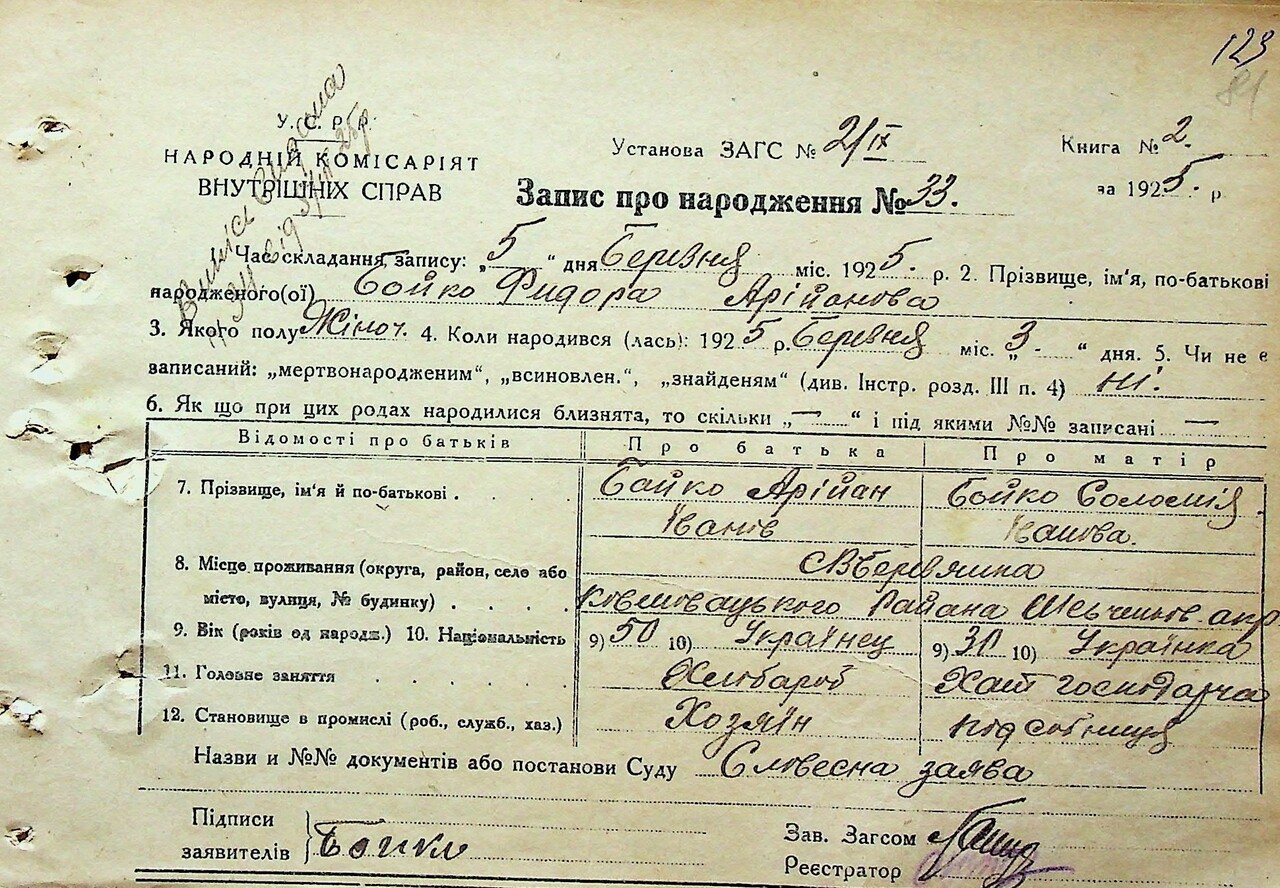 123
81
У. С. Р. Р.
НАРОДНІЙ КОМІСАРІЯТ
ВНУТРІШНІХ СПРАВ
Установа ЗАГС № 2/IX
Книга № 2.
за 1925. р
Запис про народження № 33.
Час складання запису: „5“ дня Березня міс. 1925. р. 2. Прізвище, ім'я, по-батькові
народженого(ої) Бойко Фидора Арійанова
3. Якого полу Жіноч. 4. Коли народився (лась): 1925 р. Березня міс. „3-“ дня. 5. Чи не є
записаний: „мертвонародженим“, „всиновлен.“, „знайденям“ (див. Інстр. розд. III п. 4) ні.
6. Як що при цих родах народилися близнята, то скільки „—“ і під якими №№ записані —
Відомості про батьків Про батька Про матір
7. Прізвище, ім'я й по-батькові . . . Бойко Арійан Бойко Соломія
Іванів Іванова.
8. Місце проживання (округа, район, село або
місто, вулиця, № будинку) . . . . Району
9. Вік (років од народж.) 10. Національність 9) 50 10) Українец 9) 30 10) Українка
11. Головне заняття . . . . . . Хлібароб Хат господарча
12. Становище в промислі (роб., служб., хаз.) Хозяїн подсобниця
Назви и №№ документів або постанови Суду Словесна заява
Підписи
заявителів Бойко
Зав. Загсом
Реєстратор